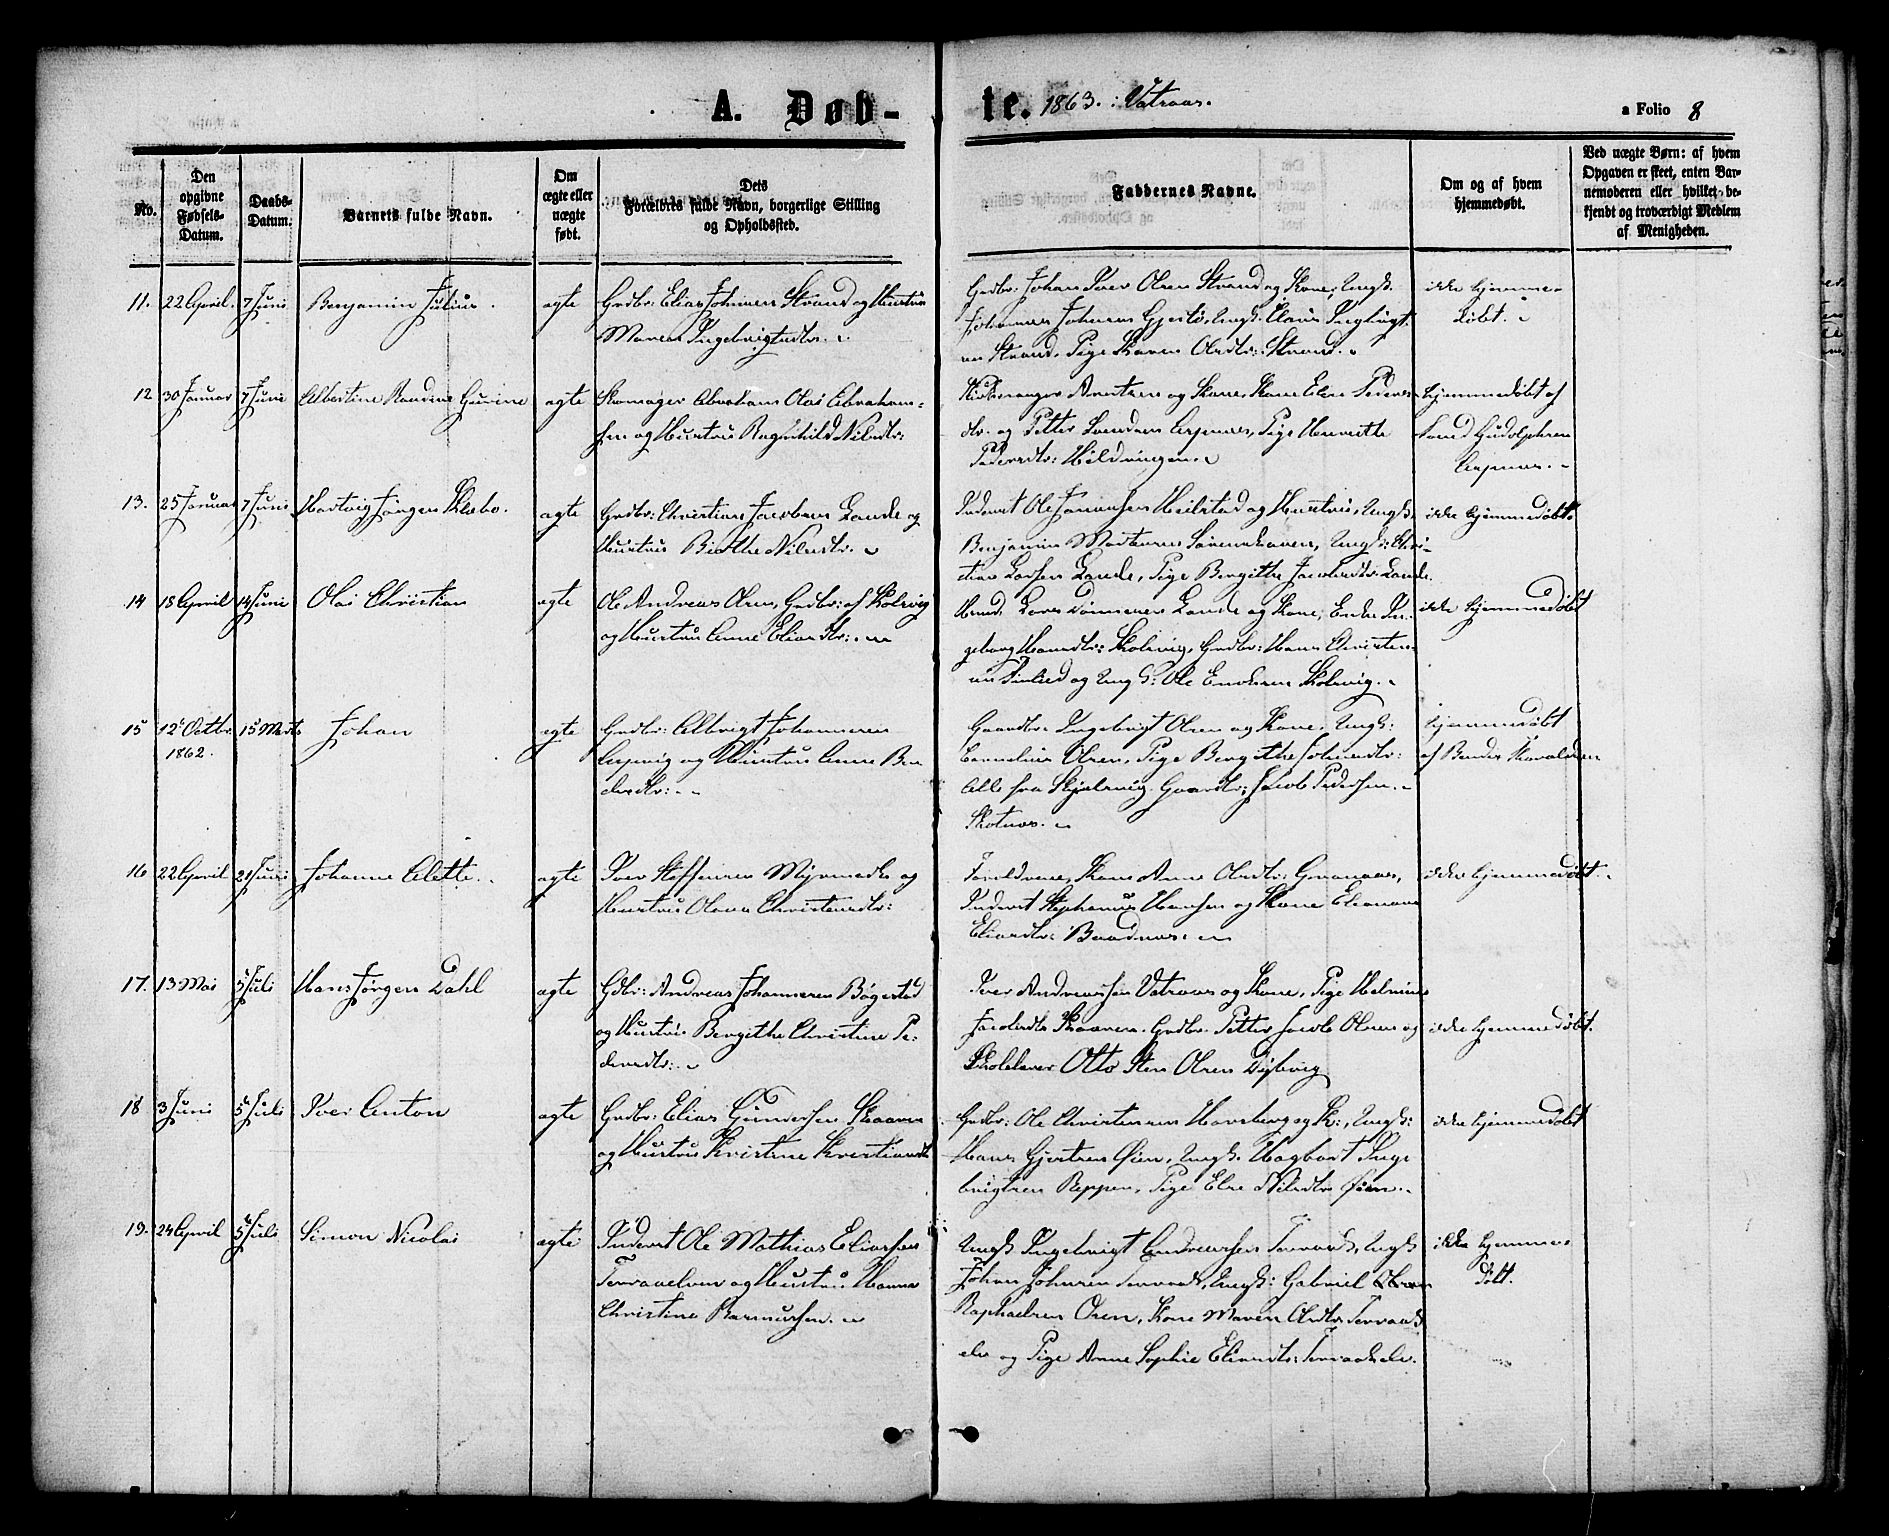 A. Døb-te. 1863. : Vatraas.
a Folio 8
No.
Den opgivne Fødsels-Datum.
Daabs-Datum.
Barnets fulde Navn.
Om ægte eller uægte født.
Dets Forældres fulde Navn, borgerlige Stilling og Opholdssted.
Faddernes Navne.
Om og af hvem hjemmedøbt.
Ved uægte Børn: af hvem Opgaven er skeet, enten Barnemoderen eller hvilket bekjendt og troværdigt Medlem af Menigheden.
11. 22 April. 7 Juni Benjamin Julius. ægte Grdbr: Elias Johnsen Strand og Hustru
Maren Ingebrigtsdtr.
Grdbr. Johan Iver Olsen Strand og Kone, Ungk.
Johannes Johnsen Gjestø, Ungk. Claus
Strand, Pige Karen Olsdtr: Strand.
ikke hjemme-
døbt.
12 30 Januar 7 Juni Albertine Randine Gurine ægte Skomager Abraham Olai Abraham-
sen og Hustru Ragnhild Nilsdtr:
Kirkesanger Arentsen og Kone, Kone Elen Peders-
dtr. og Petter Svendsen Aspenes, Pige
Pedersdtr: Hildringen.
hjemmedøbt af
13. 25 Januar 7 Juni Hartvig Jørgen Klæbo. ægte Grdbr: Christian Jacobsen Lande og
Hustru Birthe Nilsdtr.
Inderst Ole Johansen Heilstad og Hustru, Ungk.
Benjamin Mortensen Ungk: Chri-
stian Larsen Lande, Pige Bergithe Jacobsdtr. Lande.
ikke hjemmedøbt.
14 18 April 14 Juni Olai Christian ægte Ole Andreas Olsen, Grdbr: af Skolevig
og Hustru Anne Eliasdtr:
Lars Lande og Kone, Enke In-
geborg Hansdtr: Skolevig, Grdbr: Hans Christen-
sen og Ungk: Ole Skolevig.
ikke hjemmedøbt
15 12 Octbr. 1862. 15 Marts Johan ægte Grdbr: Albrigt Johannesen
og Hustru Anne
Gaardbr. Ingebrigt Olsen og Kone. Ungk:
Cornelius Olsen, Pige Bergithe Johnsdtr:
Alle fra Skjelsvig. Gaardbr: Jacob Pedersen.
Skotnes.
hjemmedøbt
16 22 April 21 Juni Johanne Alette. ægte Iver Steffensen og
Hustru Olava Christensdtr:
Forældrene, Kone Anne Olsdtr:
Inderst Stephanus Hansen og Kone Eleonora
Eliasdtr: Baadnes.
ikke hjemmedøbt.
17. 13 Mai 5 Juli Hans Jørgen Dahl ægte Gdbr: Andreas Johannesen Bøgestad
og Hustru Bergithe Christine Pe-
dersdtr:
Iver Andreassen Vatraas og Kone, Pige Helmine
Jacobsdtr Skaaren. Grdbr. Petter Jacob Olsen og
Skolelærer Otto Sten Olsen Dybvig
ikke hjemmedøbt.
18 3 Juni 5 Juli Iver Anton ægte Grdbr: Elias Gundersen Skaaren
og Hustru Kristine Kristiansdtr
Grdbr: Ole Christensen Horsberg og K:, Ungk:
Hans Gjertsen Øien, Ungk. Hagbart Inge
brigtsen Reppen, Pige Else Nilsdtr Øien.
ikke hjemmedøbt
19. 24 April 5 Juli Simon Nicolai ægte Inderst Ole Mathias Eliassen
Terraakelven og Hustru Hanna
Christine Rasmussen.
Ungk Ingebrigt Andreassen Terraak, Ungk
Johan Johnsen Terraak, Ungk: Gabriel
Raphaelsen Oren, Kone Maren Olsdtr Terraak
elv og Pige Anne Sophie Eliasdtr: Terraakelv.
ikke hjemme-
døbt.